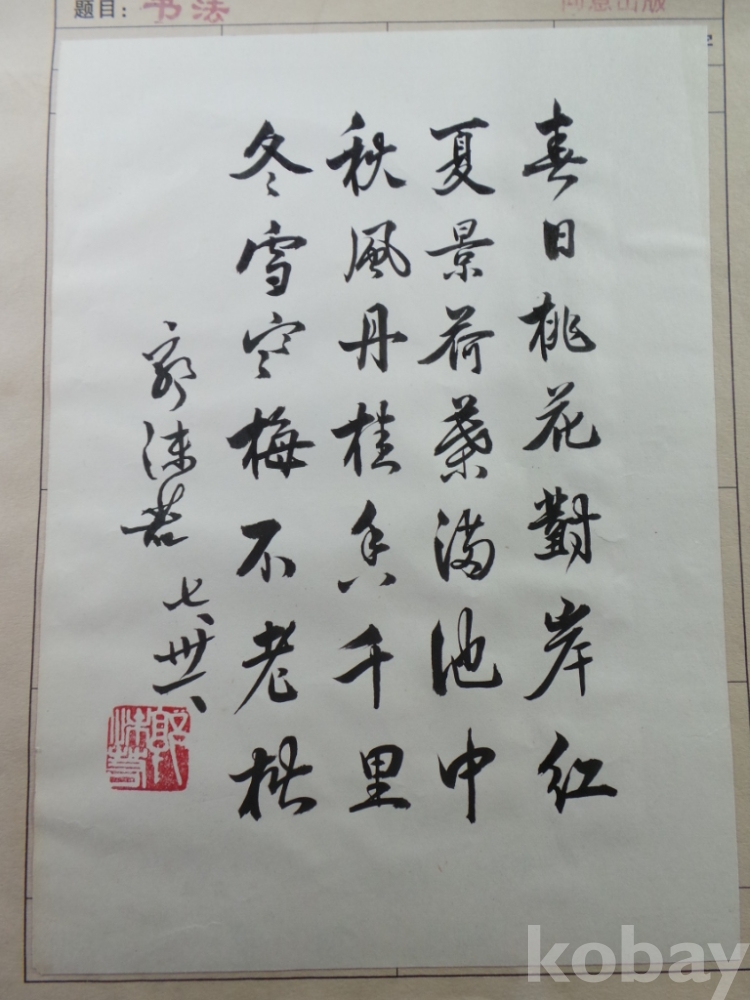 题目：书法
同意出版
春日桃花對岸紅
夏景荷葉满池中
秋風丹桂香千里
冬雪寒梅不老松
郭沫若
七、卅一、
郭沫若
kobay